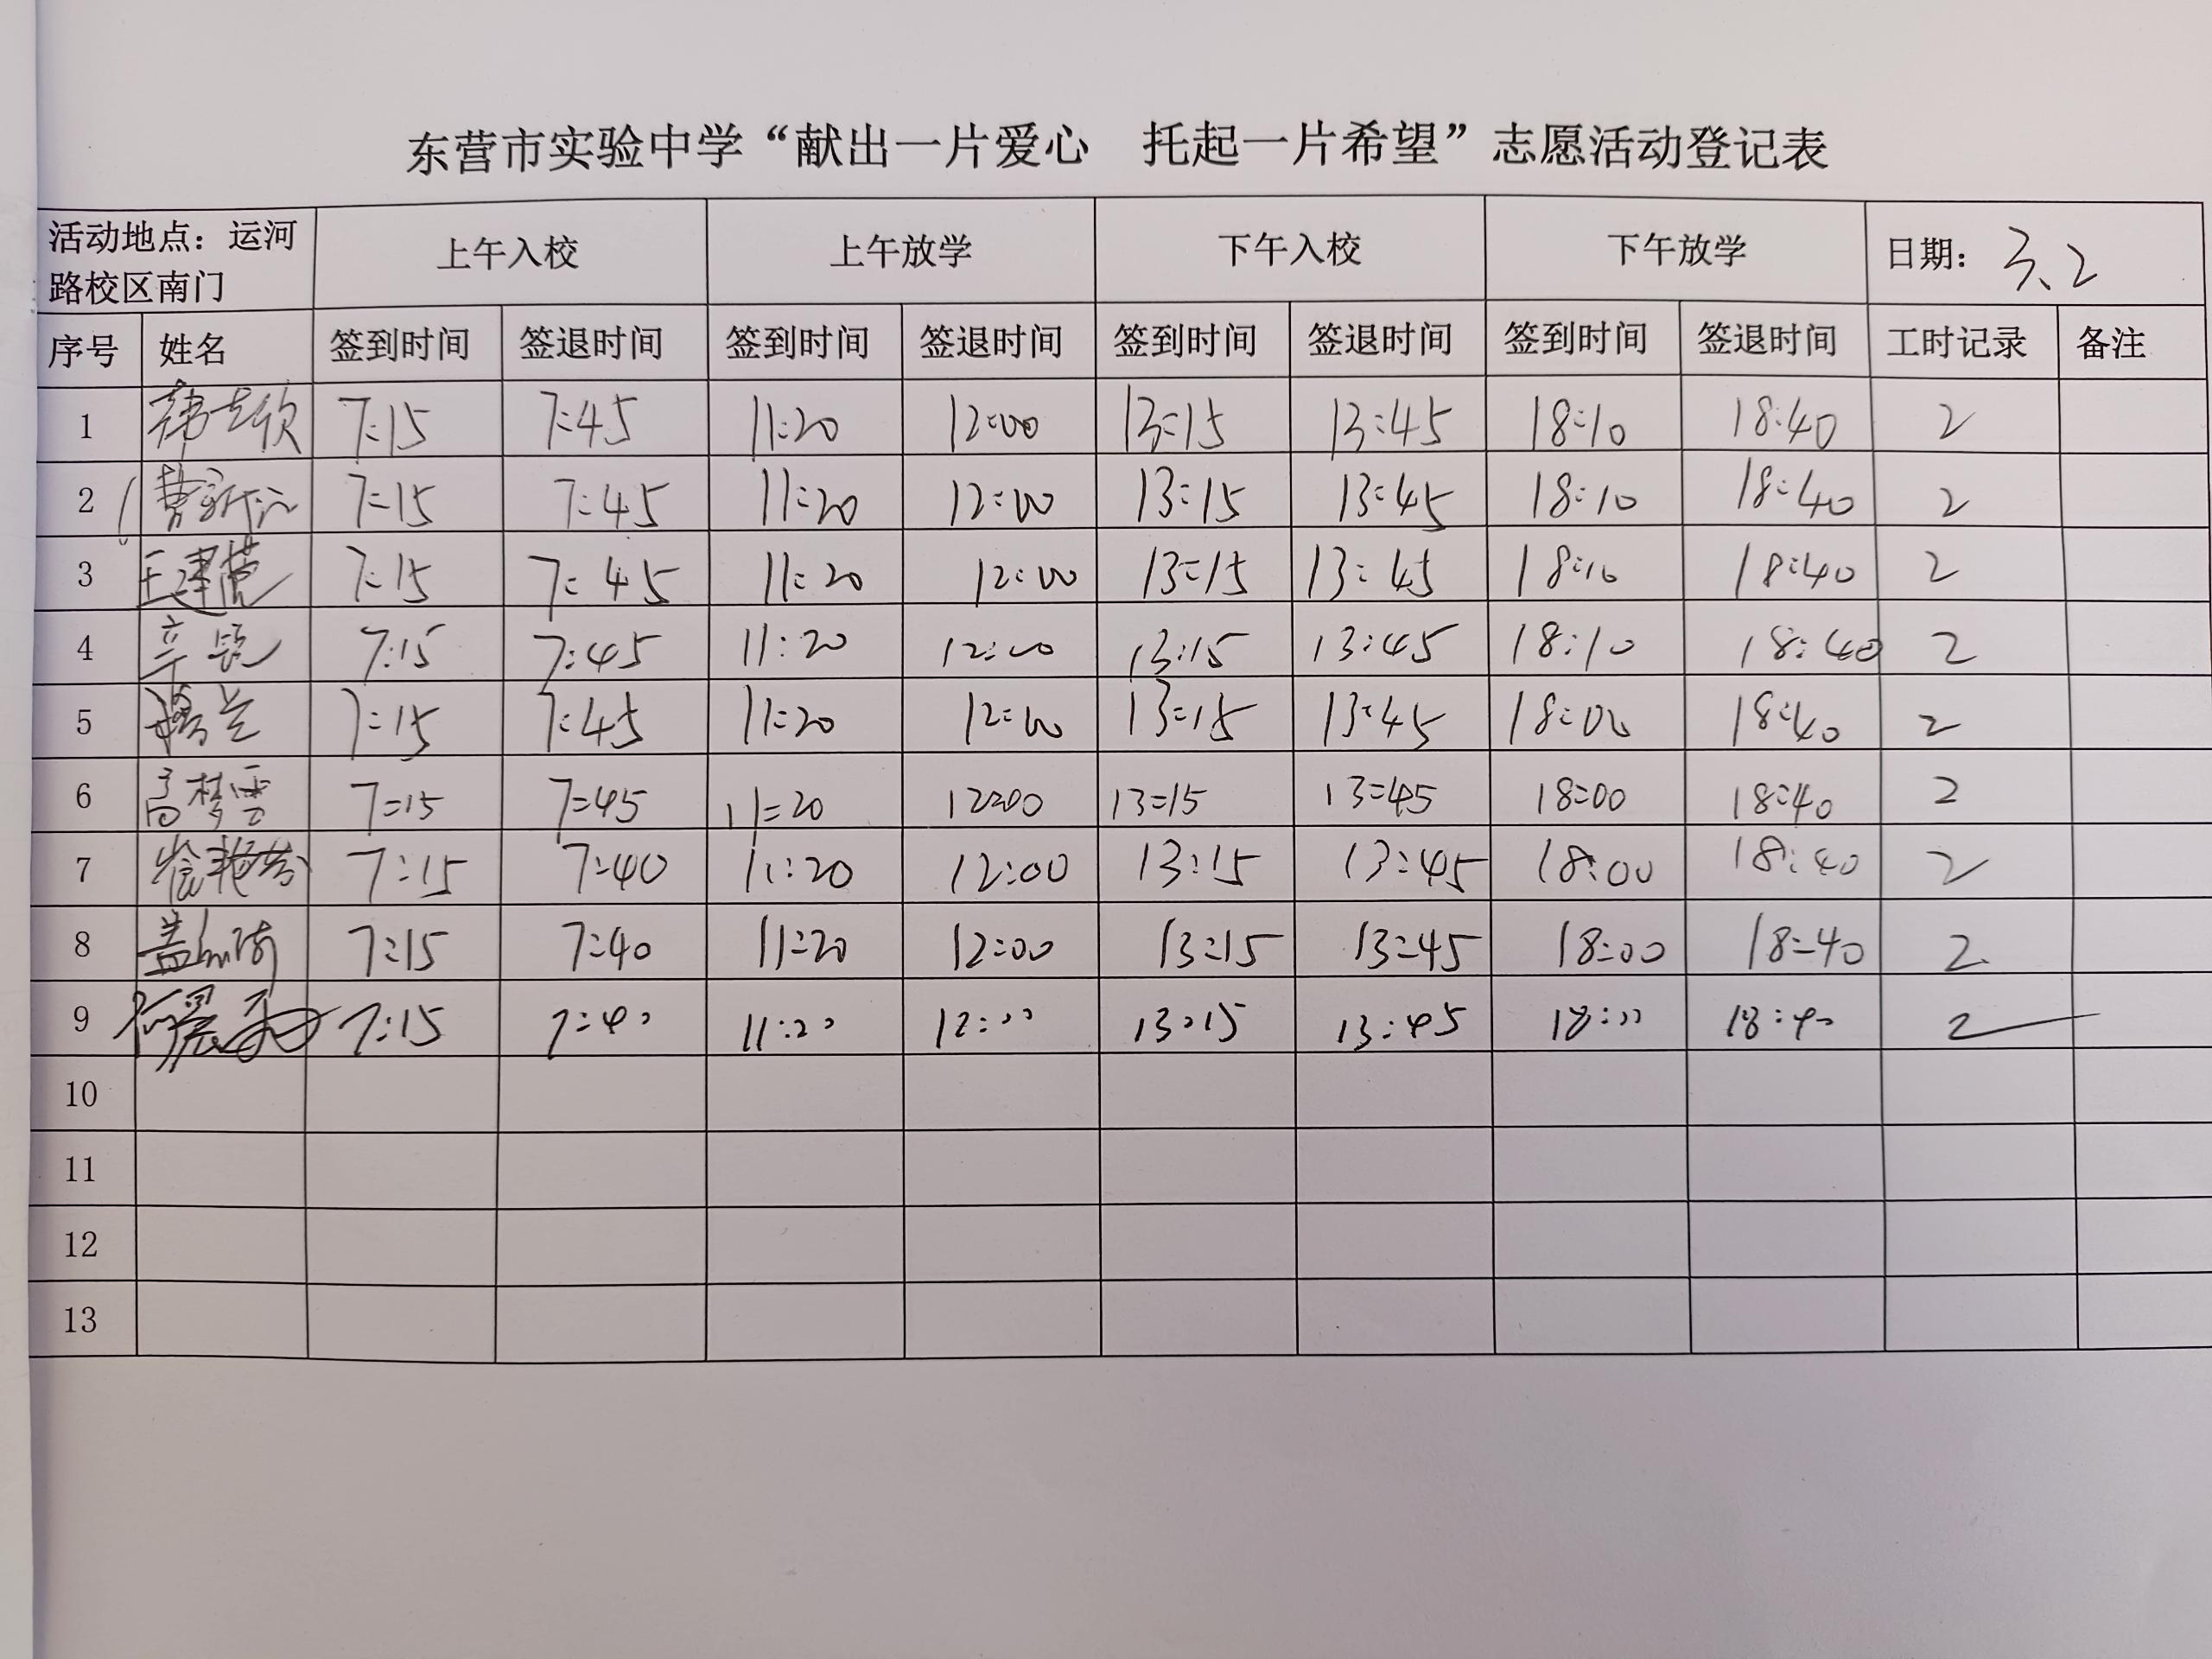 东营市实验中学“献出一片爱心　托起一片希望”志愿活动登记表
活动地点：运河路校区南门 上午入校 上午放学 下午入校 下午放学 日期：3.2
序号 姓名 签到时间 签退时间 签到时间 签退时间 签到时间 签退时间 签到时间 签退时间 工时记录 备注
1 7:15 7:45 11:20 12:00 13:15 13:45 18:10 18:40 2
2 7:15 7:45 11:20 12:00 13:15 13:45 18:10 18:40 2
3 7:15 7:45 11:20 12:00 13:15 13:45 18:10 18:40 2
4 7:15 7:45 11:20 12:00 13:15 13:45 18:10 18:40 2
5 7:15 7:45 11:20 12:00 13:15 13:45 18:00 18:40 2
6 高梦雪 7:15 7:45 11:20 12:00 13:15 13:45 18:00 18:40 2
7 7:15 7:40 11:20 12:00 13:15 13:45 18:00 18:40 2
8 7:15 7:40 11:20 12:00 13:15 13:45 18:00 18:40 2
9 7:15 7:40 11:20 12:00 13:15 13:45 18:00 18:40 2
10
11
12
13